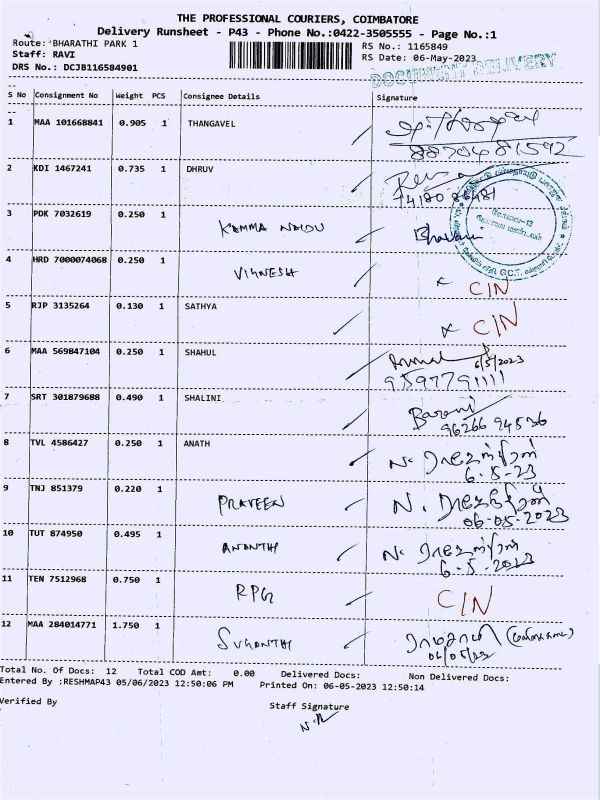 THE PROFESSIONAL COURIERS, COIMBATORE
Delivery Runsheet - P43 - Phone No.:0422-3505555 - Page No.:1
Route: BHARATHI PARK 1 RS No.: 1165849
Staff: RAVI RS Date: 06-May-2023
DRS No.: DCJB116584901
DOCUMENT DELIVERY
S No Consignment No Weight PCS Consignee Details Signature
1 MAA 101668841 0.905 1 THANGAVEL
8870481592
2 KDI 1467241 0.735 1 DHRUV
3 PDK 7032619 0.250 1 KAMMA NAIDU Bhavani
4 HRD 7000074068 0.250 1 VIGNESH × C/N
5 RJP 3135264 0.130 1 SATHYA × C/N
6 MAA 569847104 0.250 1 SHAHUL 6/5/2023
9597791111
7 SRT 301879688 0.490 1 SHALINI Barani
96266 94536
8 TVL 4586427 0.250 1 ANATH
6-5-23
9 TNJ 851379 0.220 1 PRAVEEN
06-05-2023
10 TUT 874950 0.495 1 ANANTHI
6-5-2023
11 TEN 7512968 0.750 1 RPG C/N
12 MAA 284014771 1.750 1 SUGANTHI
06/05/23
Total No. Of Docs: 12 Total COD Amt: 0.00 Delivered Docs: Non Delivered Docs:
Entered By :RESHMAP43 05/06/2023 12:50:06 PM Printed On: 06-05-2023 12:50:14
Verified By Staff Signature